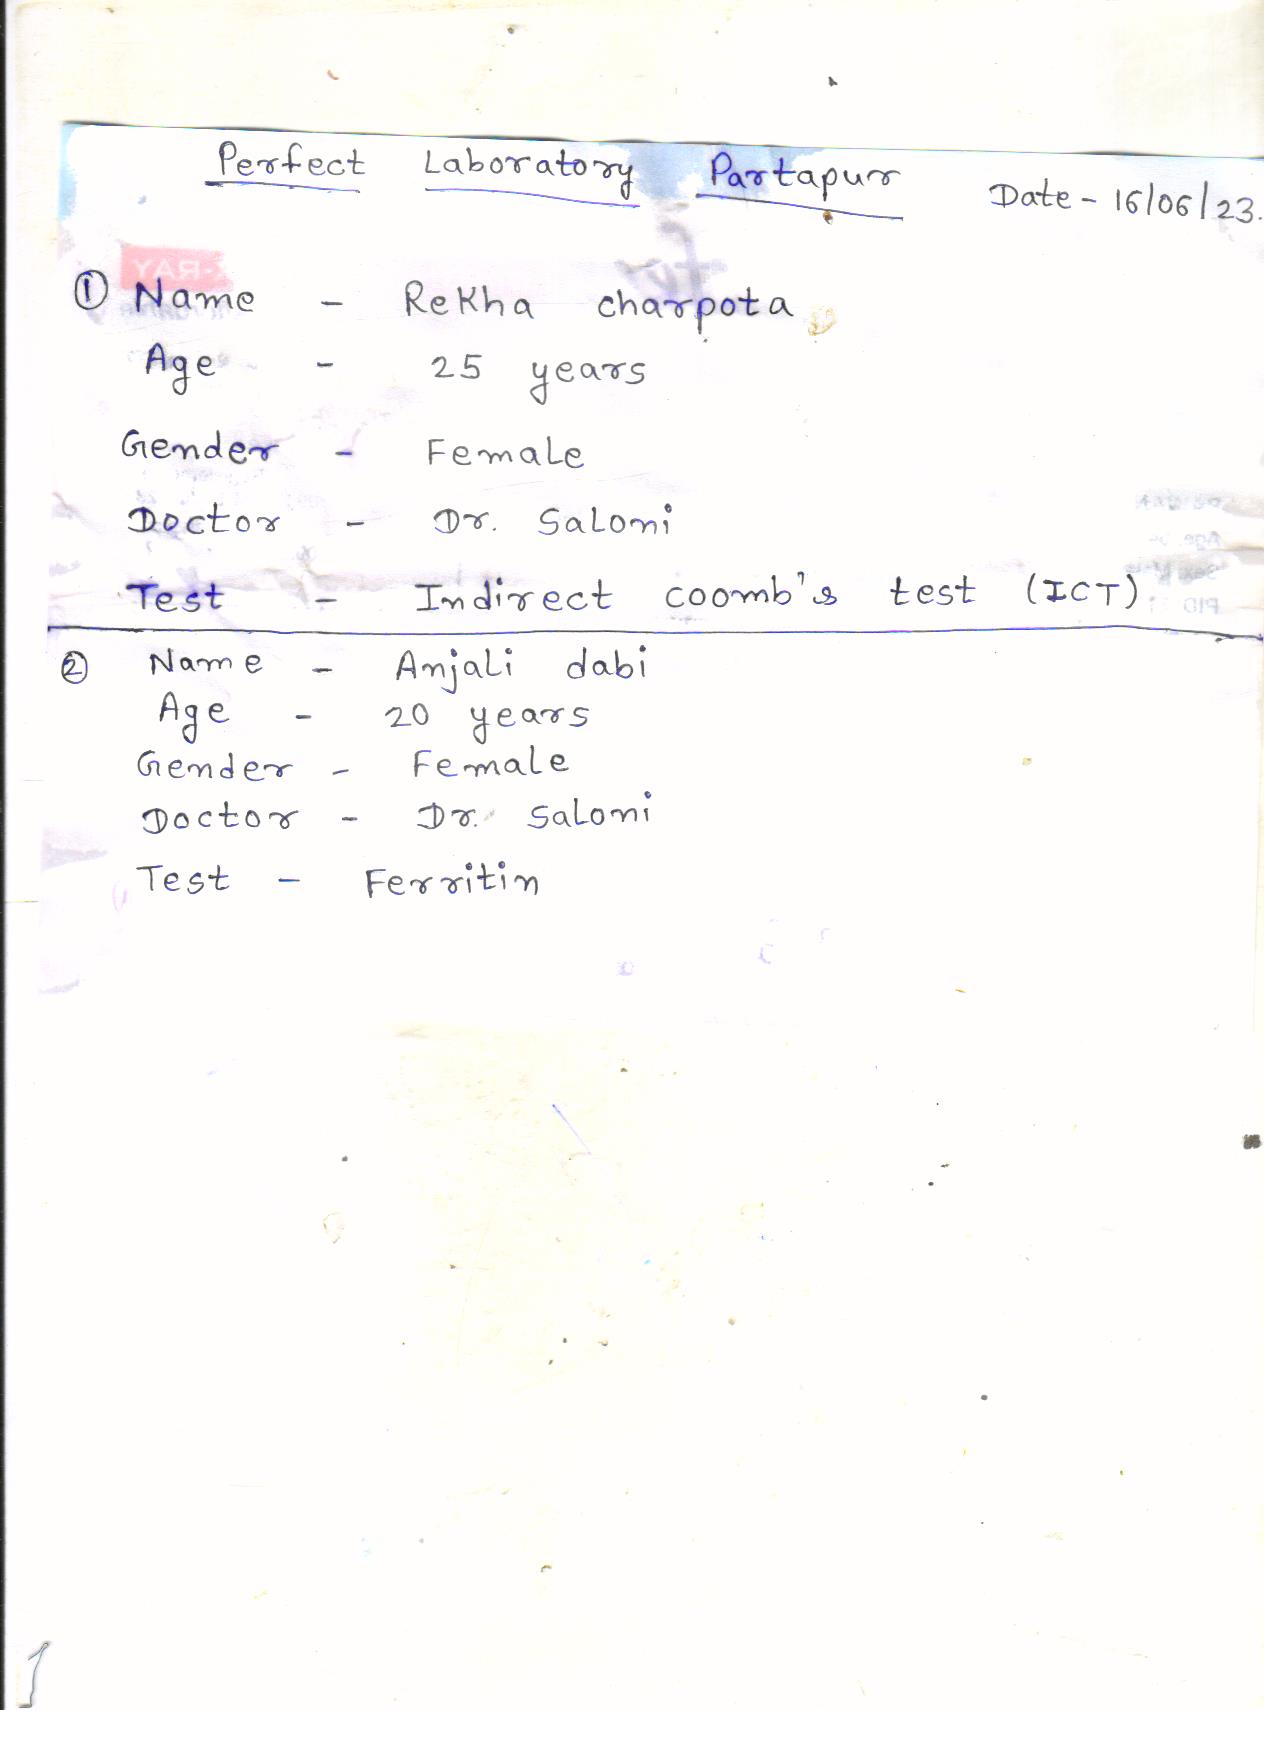 Perfect Laboratory Partapur Date - 16/06/23.
① Name - Rekha charpota
Age - 25 years
Gender - Female
Doctor - Dr. Saloni
Test - Indirect coomb's test (ICT)
② Name - Anjali dabi
Age - 20 years
Gender - Female
Doctor - Dr. Saloni
Test - Ferritin
1